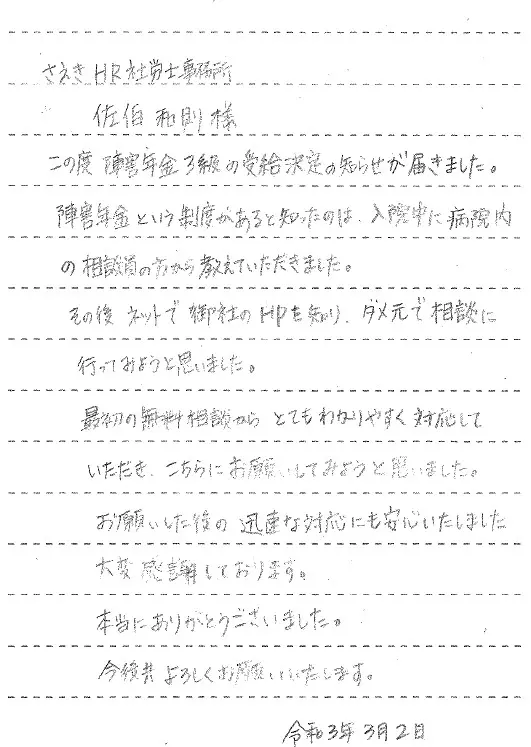 さえきHR社労士事務所
佐伯和則様
この度 障害年金3級の受給決定の知らせが届きました。
障害年金という制度があると知ったのは、入院中に病院内
の相談員の方から教えていただきました。
その後 ネットで 御社のHPを知り、ダメ元で相談に
行ってみようと思いました。
最初の無料相談から とてもわかりやすく対応して
いただき、こちらにお願いしてみようと思いました。
お願いした後の 迅速な対応にも安心いたしました
大変感謝しております。
本当にありがとうございました。
今後共よろしくお願いいたします。
令和3年3月2日